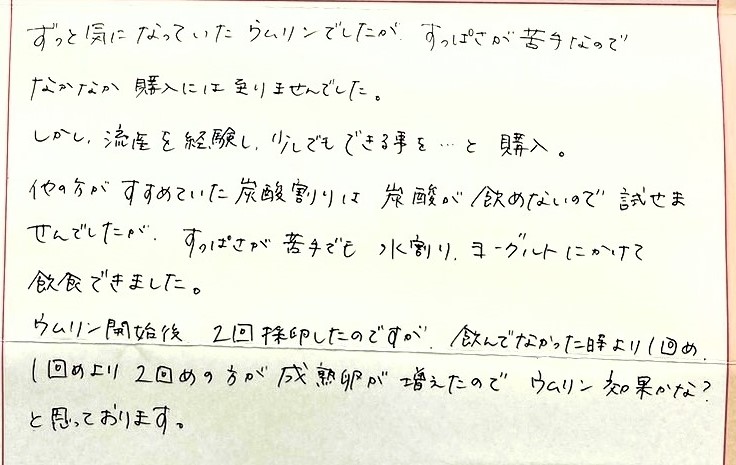 ずっと気になっていたウムリンでしたが、すっぱさが苦手なので
なかなか購入には至りませんでした。
しかし、流産を経験し、少しでもできる事を…と購入。
他の方がすすめていた炭酸割りは炭酸が飲めないので試せま
せんでしたが、すっぱさが苦手でも水割り、ヨーグルトにかけて
飲食できました。
ウムリン開始後 2回採卵したのですが、飲んでなかった時より1回め、
1回めより2回めの方が成熟卵が増えたのでウムリン効果かな?
と思っております。